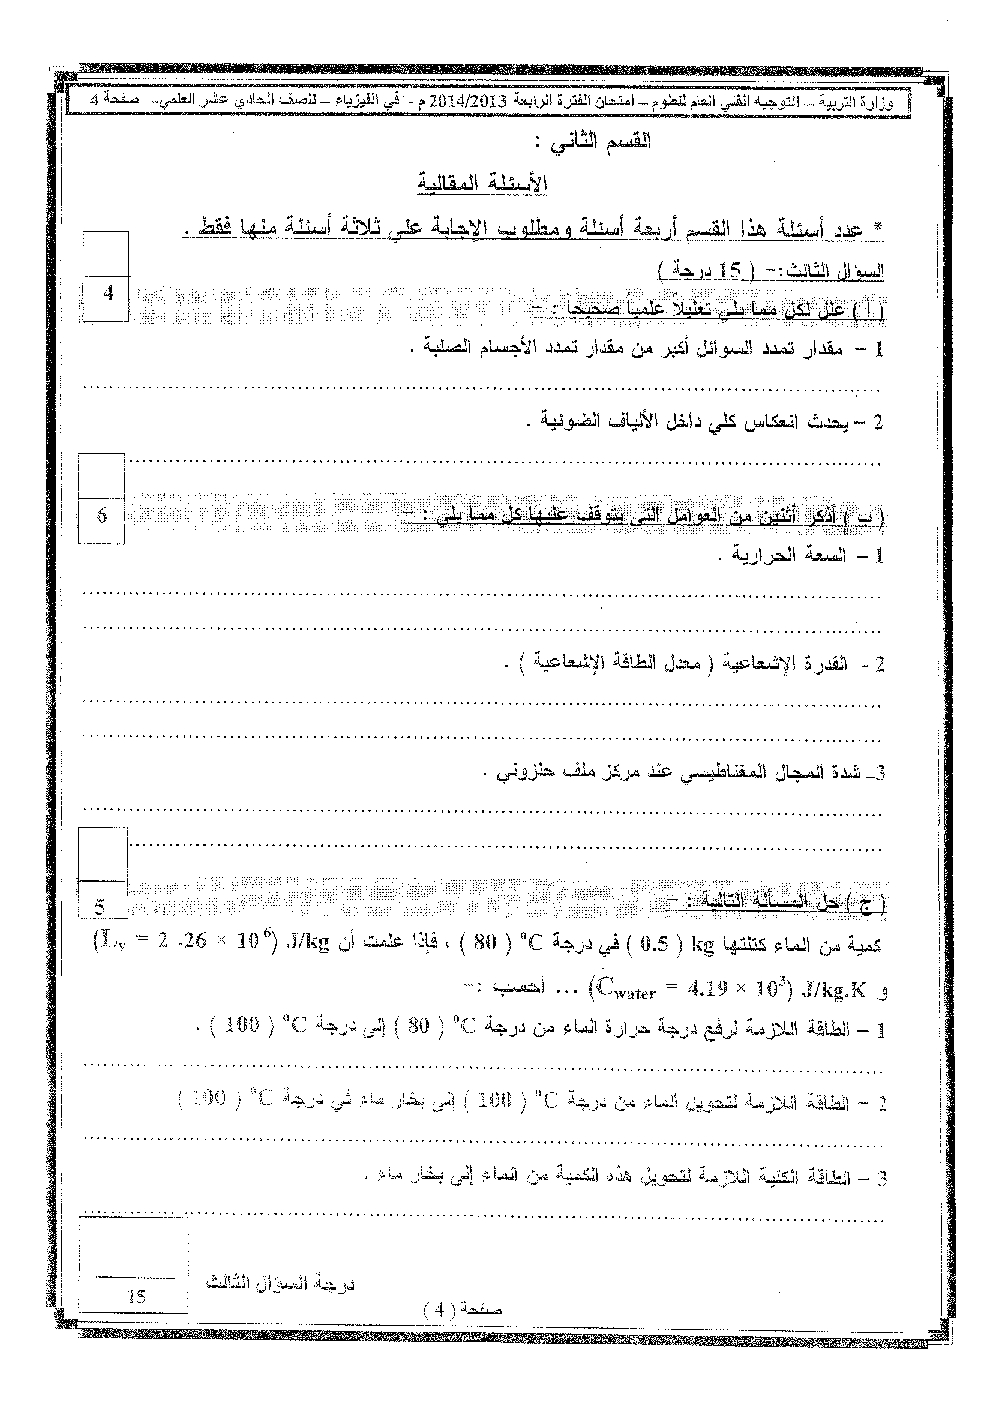 وزارة التربية – التوجيه الفني العام للعلوم – امتحان الفترة الرابعة 2014/2013 م - في الفيزياء – للصف الحادي عشر العلمي – صفحة 4
القسم الثاني :
الأسئلة المقالية
* عدد أسئلة هذا القسم أربعة أسئلة ومطلوب الإجابة على ثلاثة أسئلة منها فقط .
السؤال الثالث:- ( 15 درجة )
( أ ) علل لكل مما يلي تعليلاً علمياً صحيحاً : -
4
1 – مقدار تمدد السوائل أكبر من مقدار تمدد الأجسام الصلبة .
2 – يحدث انعكاس كلي داخل الألياف الضوئية .
( ب ) أذكر اثنين من العوامل التي يتوقف عليها كل مما يلي : -
6
1 – السعة الحرارية .
2 - القدرة الإشعاعية ( معدل الطاقة الإشعاعية ) .
3- شدة المجال المغناطيسي عند مركز ملف حلزوني .
( ج ) حل المسألة التالية : -
5
كمية من الماء كتلتها kg ( 0.5 ) في درجة ⁰C ( 80 ) ، فإذا علمت أن (Lᵥ = 2 .26 × 10⁶) J/kg
و (C water = 4.19 × 10³) J/kg.K ... أحسب :-
1 – الطاقة اللازمة لرفع درجة حرارة الماء من درجة ⁰C ( 80 ) إلى درجة ⁰C ( 100 ) .
2 – الطاقة اللازمة لتحويل الماء من درجة ⁰C ( 100 ) إلى بخار ماء في درجة ⁰C ( 100 )
3 – الطاقة الكلية اللازمة لتحويل هذه الكمية من الماء إلى بخار ماء .
درجة السؤال الثالث
15
صفحة ( 4 )